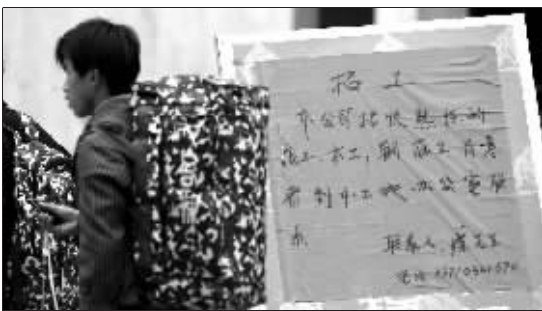 招工
本公司招收熟练的
瓦工、木工，钢筋工有意
者到本工地办公室联
系
联系人
电话